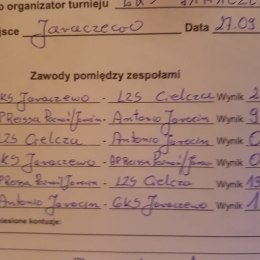 organizator turnieju
Jaraczewo Data 27.09
Zawody pomiędzy zespołami
GKS Jaraczewo - LZS Cielcza Wynik 2
AP Reissa Poznań/Jarocin - Antonio Jarocin Wynik 9
LZS Cielcza - Antonio Jarocin Wynik 0
GKS Jaraczewo - AP Reissa Poznań/Jarocin Wynik 0
AP Reissa Poznań/Jarocin - LZS Cielcza Wynik 13
Antonio Jarocin - GKS Jaraczewo Wynik 1
kontuzje: